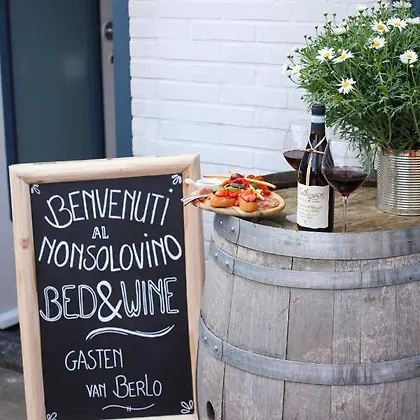 BENVENUTI
AL
NONSOLOVINO
BED&WINE
GASTEN
VAN BERLO